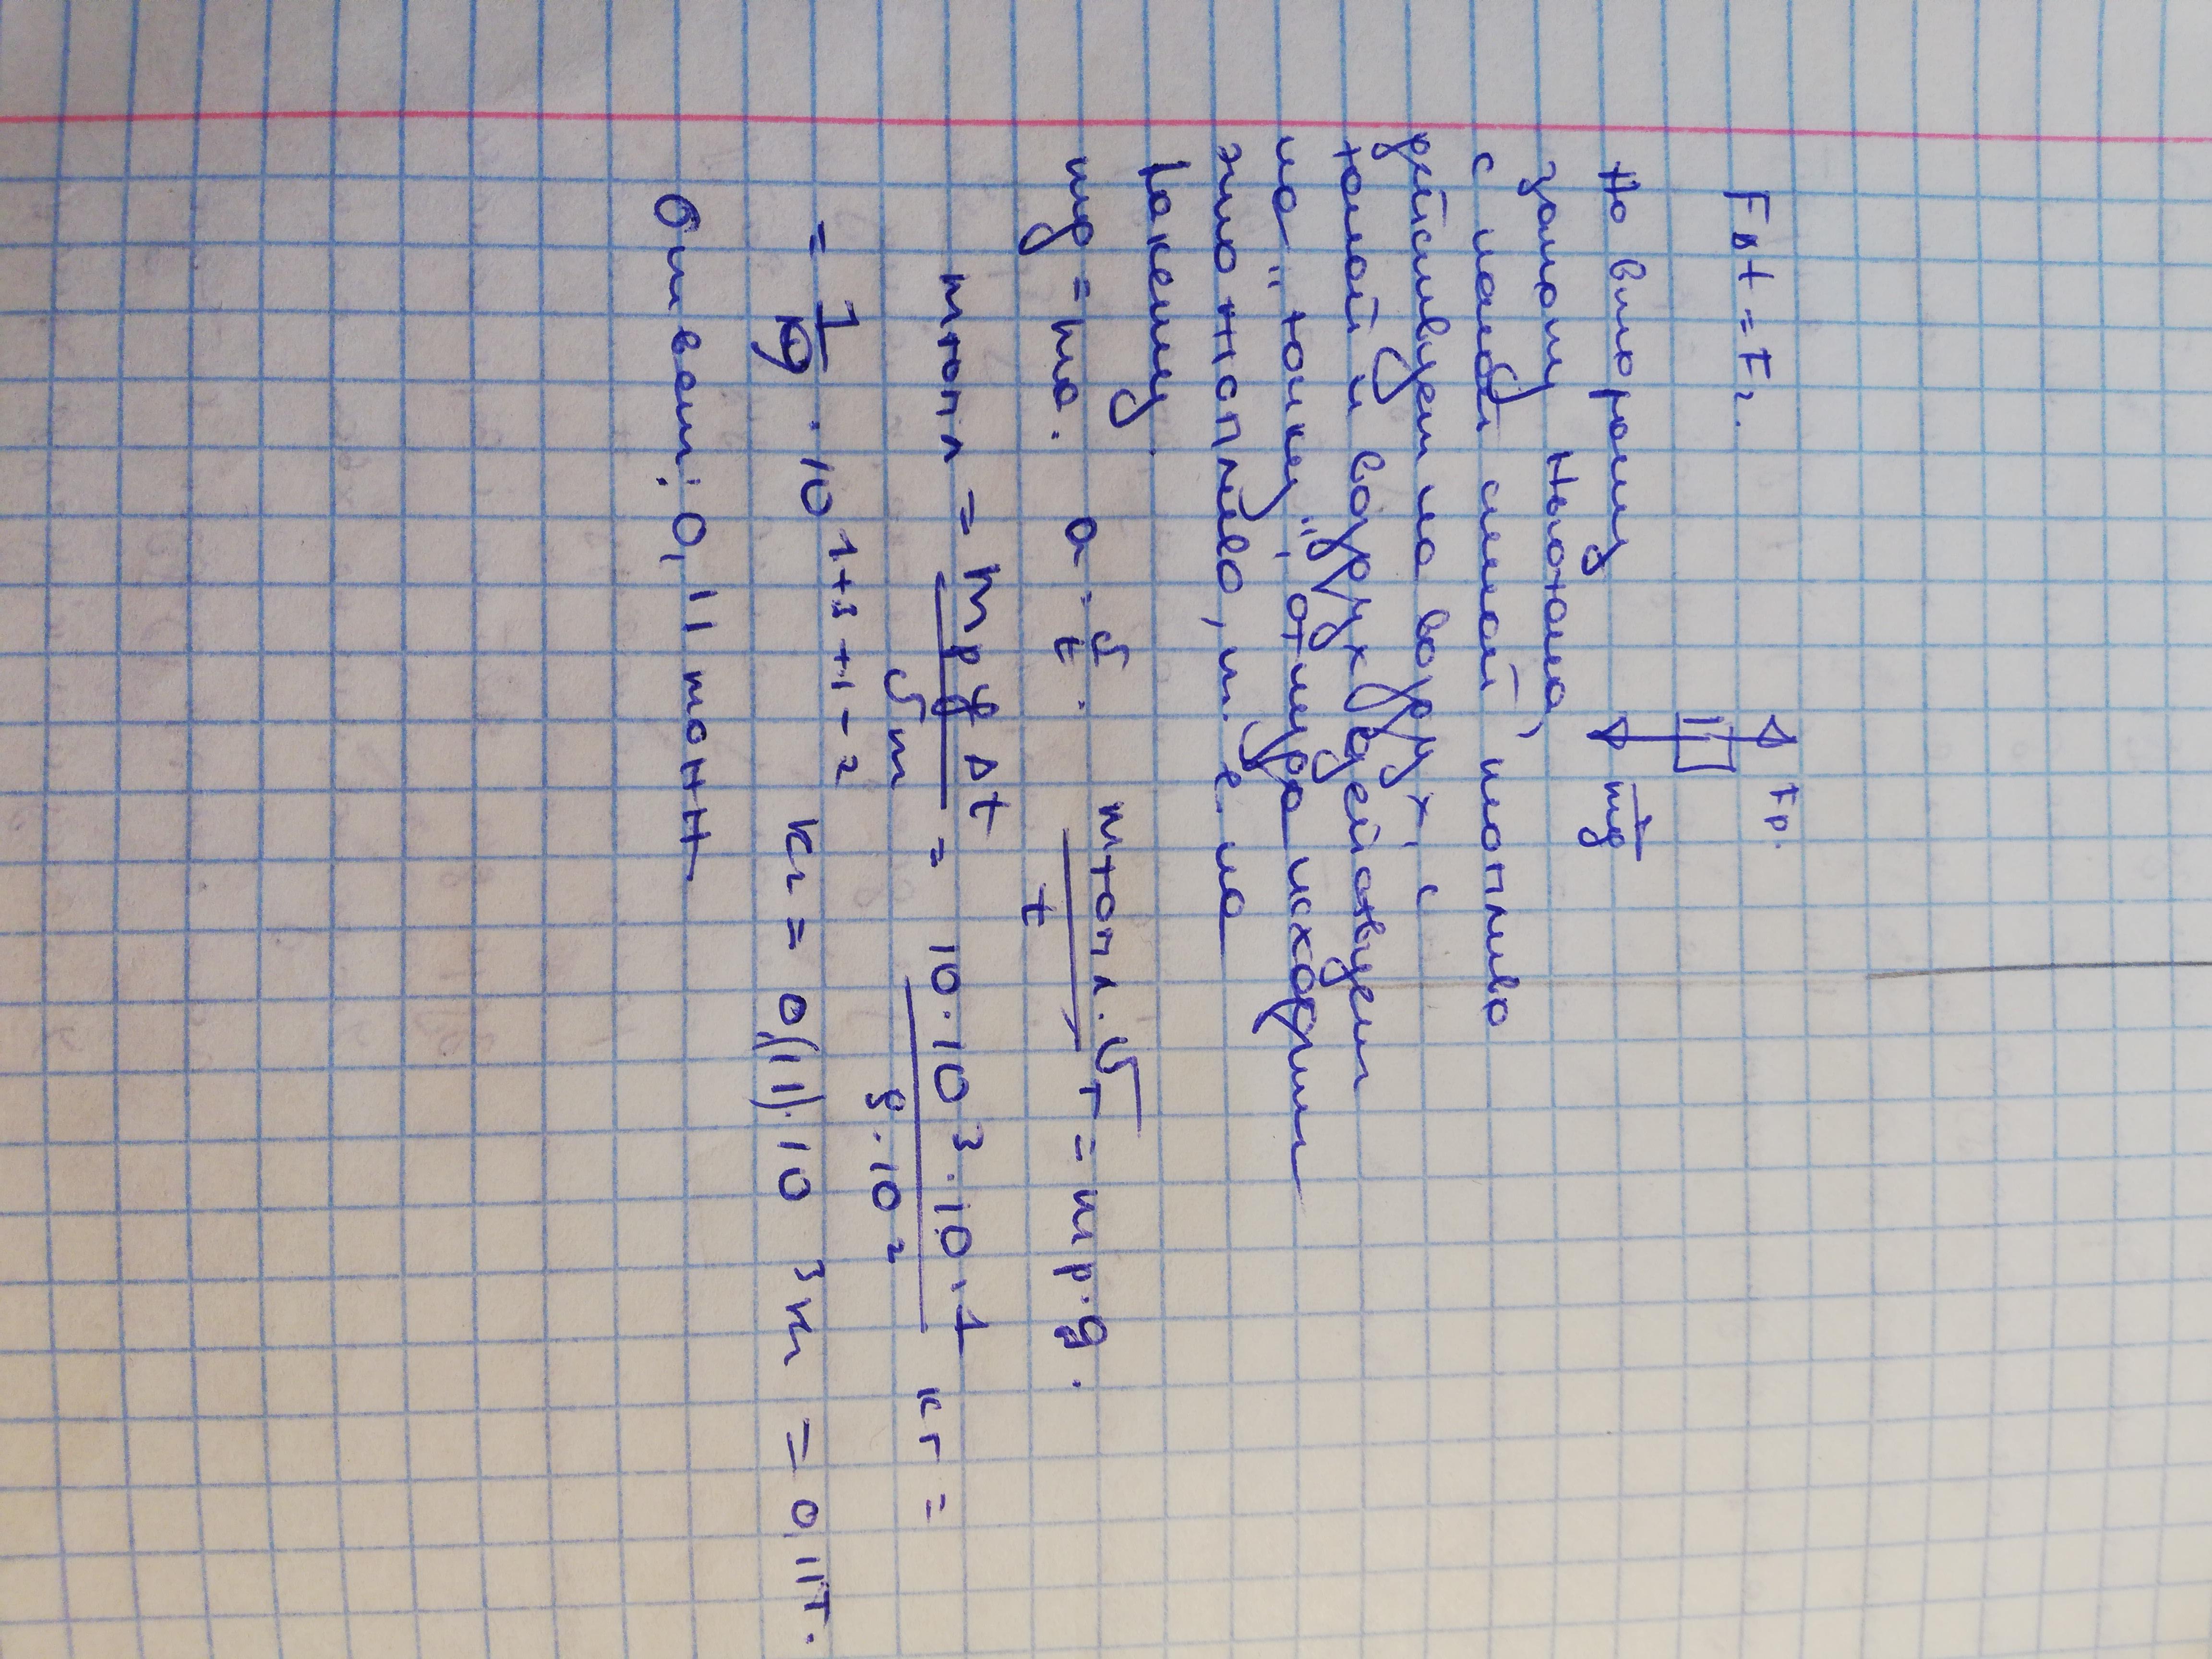 F∆t = Fг.
Fр.
mg
Но второму
закону Ньютона,
с какой силой топливо
действует на воздух, с
такой и воздух действует
на "точку", откуда исходит
это топливо, т. е. на
ракету.
mg = ma. a = υ/t. mтопл.·υт/t = mр·g.
mтопл = mр g ∆t / υт = 10·10³·10·1 / 9·10² кг =
= 1/9 · 10^1+3+1-2 кг = 0,(11)·10³ кг = 0,11т.
Ответ: 0,11 тонн